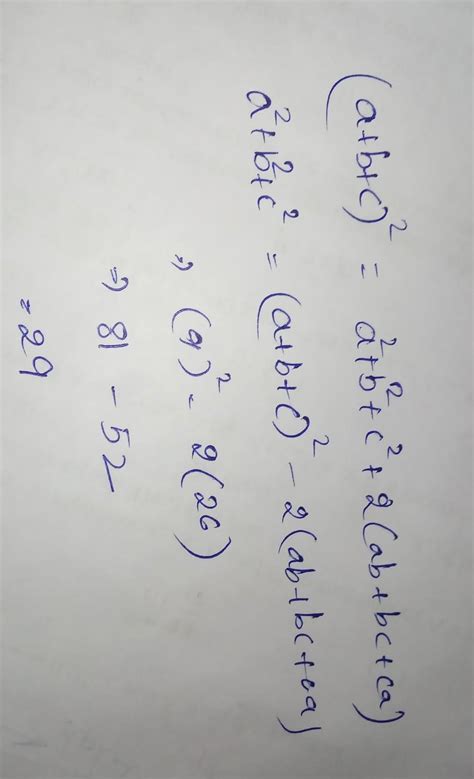 (a+b+c)² = a²+b²+c²+2(ab+bc+ca)
a²+b²+c² = (a+b+c)² - 2(ab+bc+ca)
⇒ (9)² - 2(26)
⇒ 81 - 52
= 29